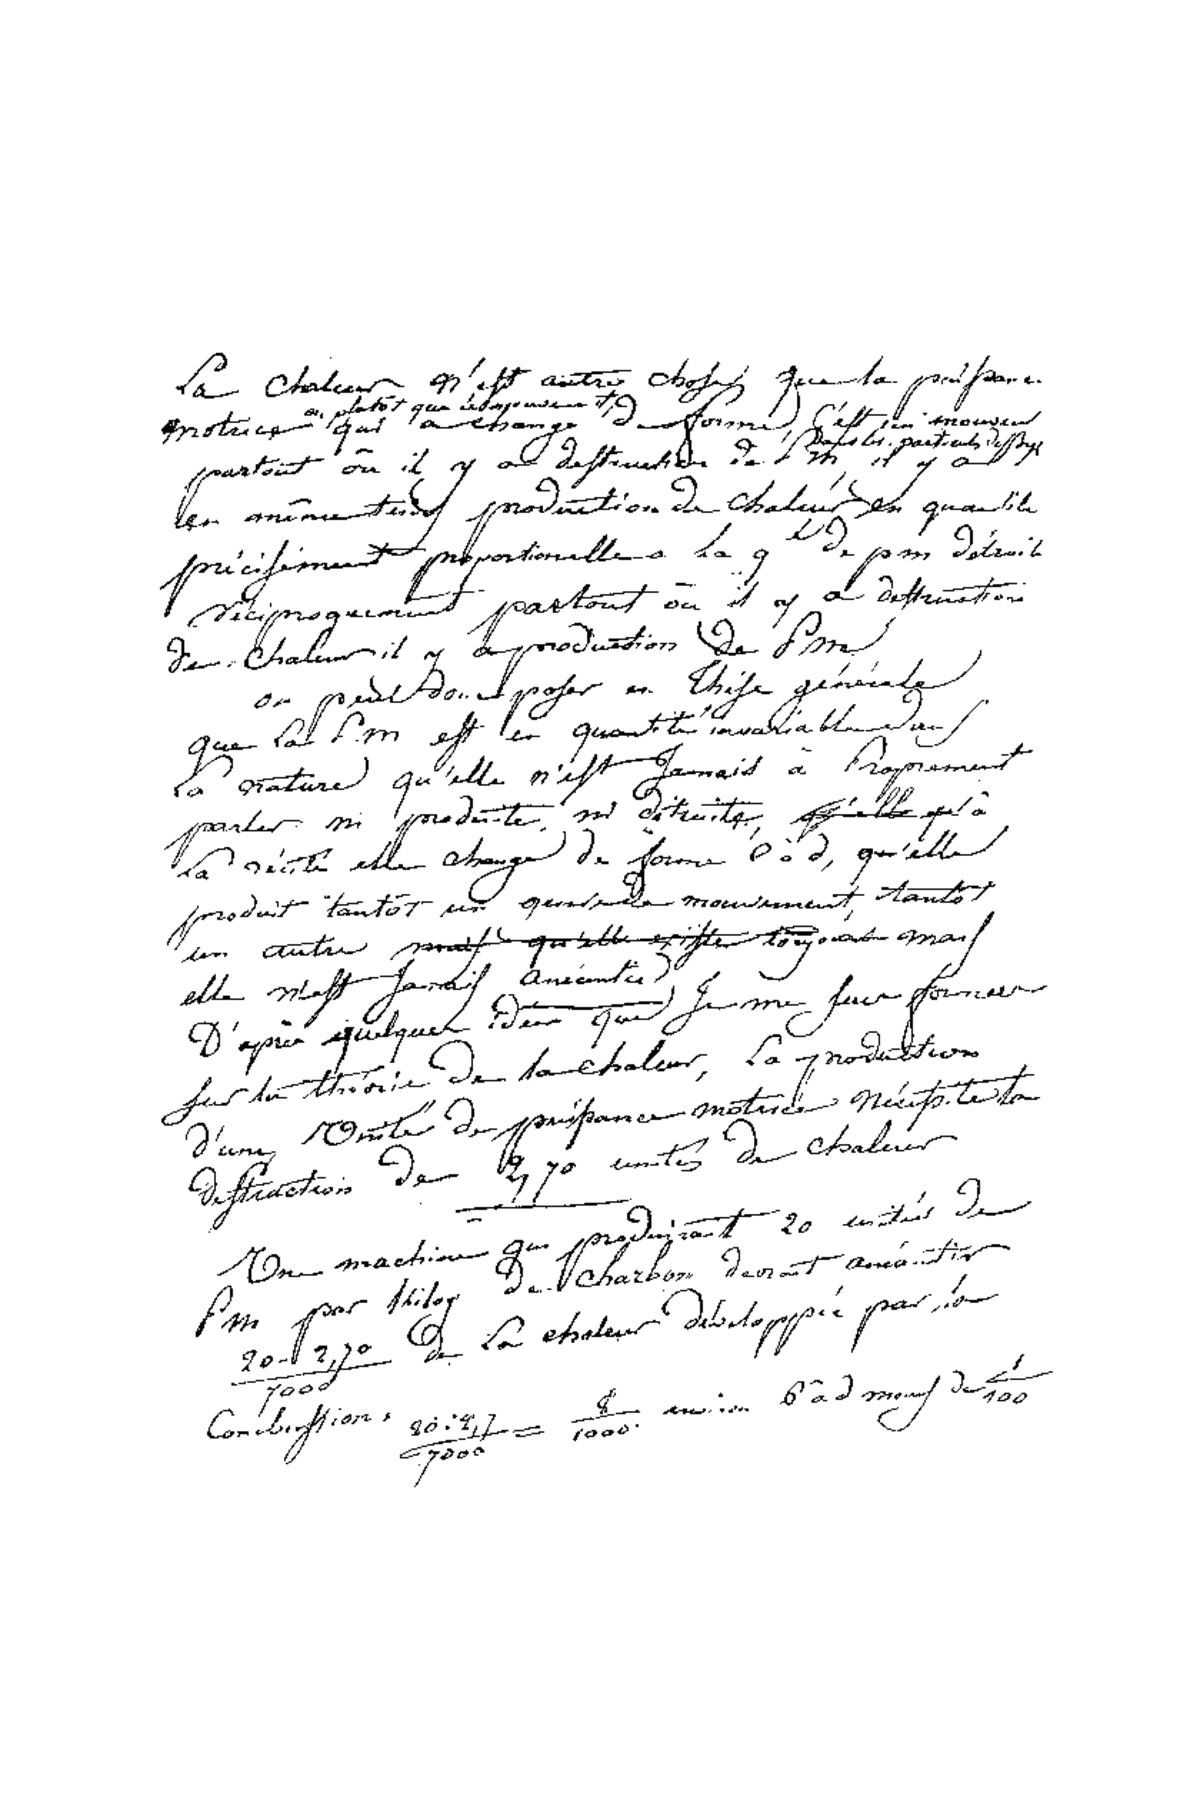 La chaleur n'est autre chose que la puissance
motrice ou plutôt que le mouvement qui a changé de forme, c'est un mouvem
dans les particules des corps
partout où il y a destruction de P.m il y a
en même tems production de chaleur en quantité
précisément proportionnelle a la qté de p m détruite
réciproquement partout où il y a destruction
de chaleur il y a production de P.M
on peut donc poser en thèse générale
que la P.m est en quantité invariable dans
la nature qu'elle n'est jamais à proprement
parler ni produite, ni détruite, qu'elle qu'à
la vérité elle change de forme càd, qu'elle
produit tantôt un genre de mouvement, tantôt
un autre mais qu'elle existe toujours mais
elle n'est jamais anéantie
D'après quelques idées que je me suis formées
sur la théorie de la chaleur, la production
d'une Unité de puissance motrice nécessite la
destruction de 2,70 unités de chaleur
Une machine qui produirait 20 unités de
P m par kilog de Charbon devrait anéantir
20 . 2,70 / 7000 de la chaleur développée par la
Combustion, 20 . 2,7 / 7000 = 8 / 1000 environ càd moins de 1 / 100